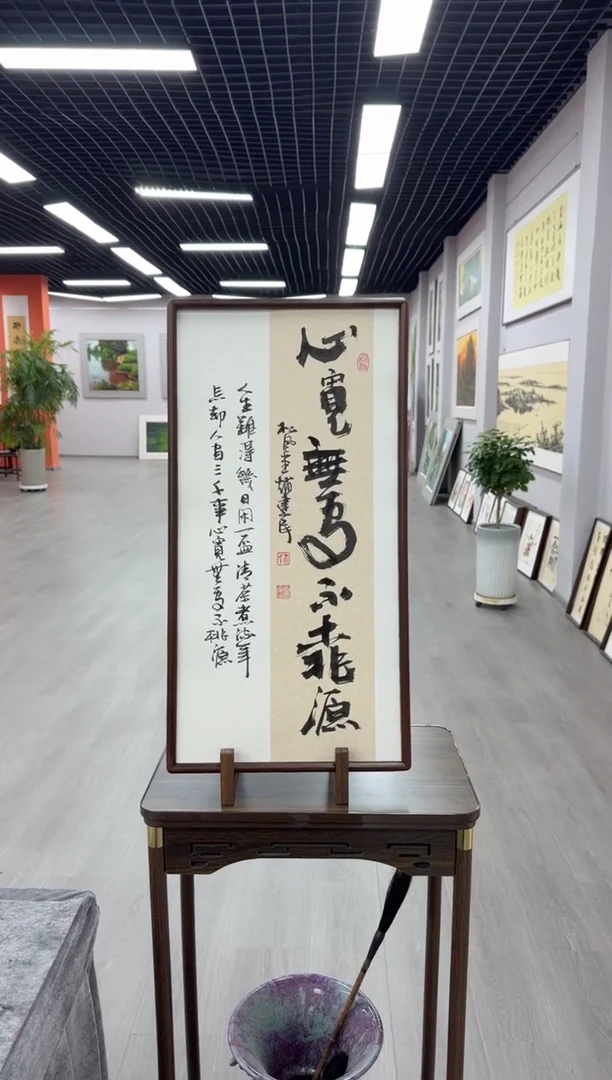 心寬無處不桃源
松風堂趙建民
人生難得幾日閑一盃清茶煮流年
忘却人間三千事心寬無處不桃源